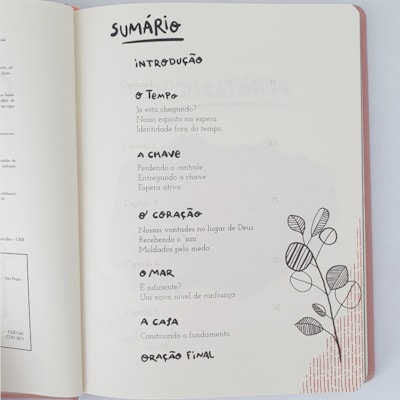 SUMÁRIO
INTRODUÇÃO
O TEMPO
Já está chegando?
Nosso espírito na espera
Identidade fora do tempo
A CHAVE
Perdendo o controle
Entregando a chave
Espera ativa
O CORAÇÃO
Nossas vontades no lugar de Deus
Recebendo o "sim"
Moldados pelo medo
O MAR
É suficiente?
Um novo nível de confiança
A CASA
Construindo o fundamento
ORAÇÃO FINAL